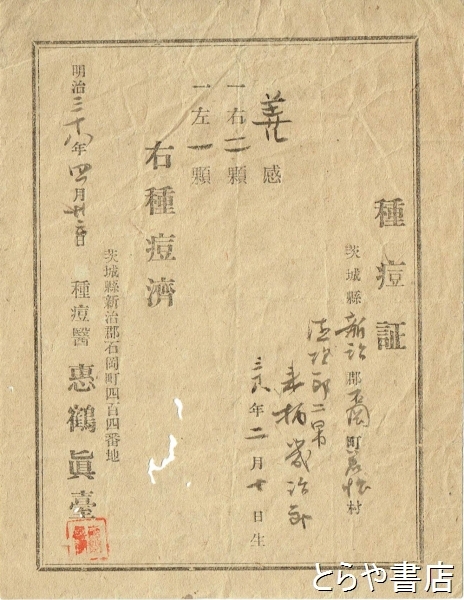 種痘証
茨城縣新治郡石岡町村
二男
三八年二月十日生
善感
一右二顆
一左一顆
右種痘濟
明治三十八年四月廿日
茨城縣新治郡石岡町四百四番地
種痘醫 惠鶴眞臺
とらや書店